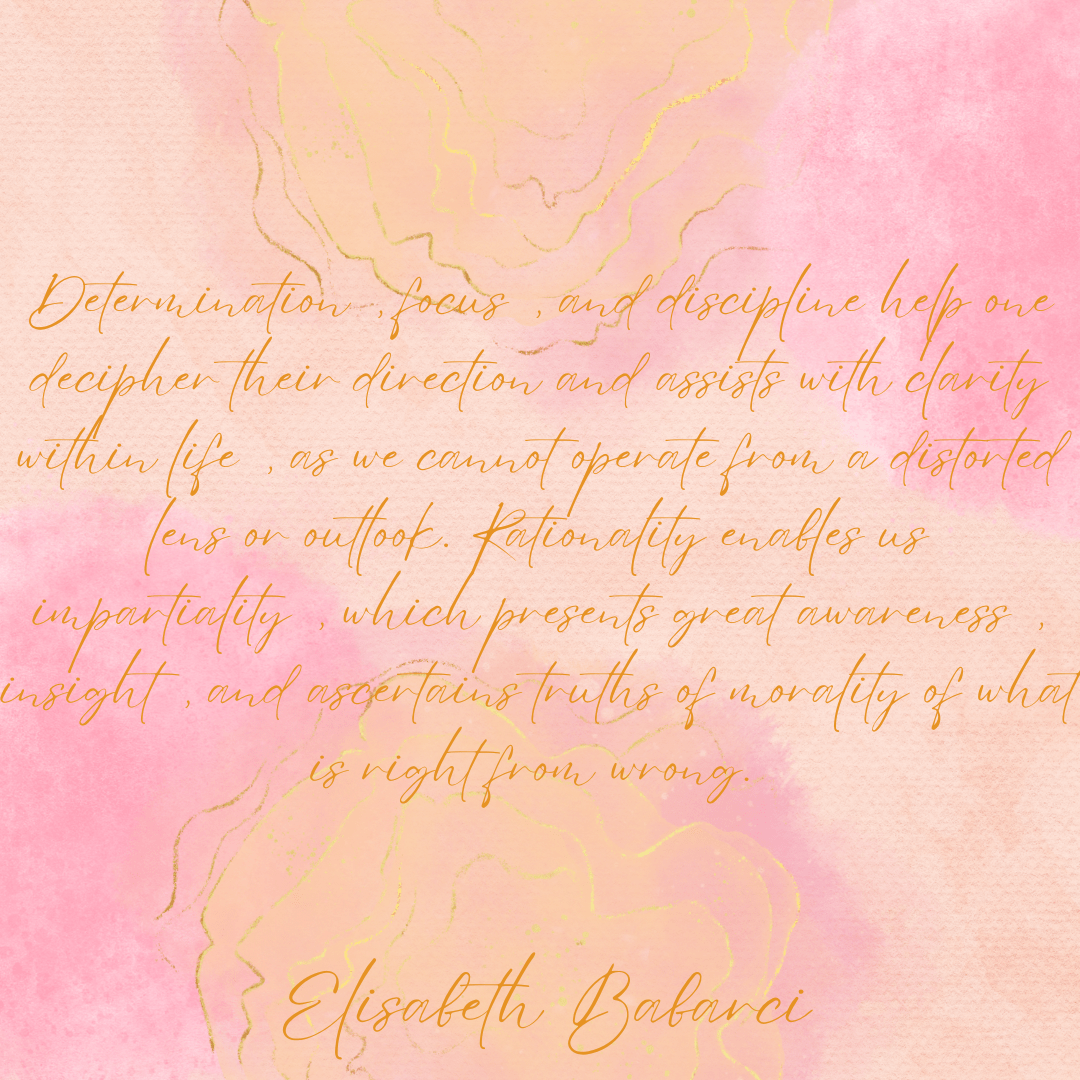 Determination , focus , and discipline help one
decipher their direction and assists with clarity
within life , as we cannot operate from a distorted
lens or outlook. Rationality enables us
impartiality , which presents great awareness ,
insight , and ascertains truths of morality of what
is right from wrong.
Elisabeth Babarci